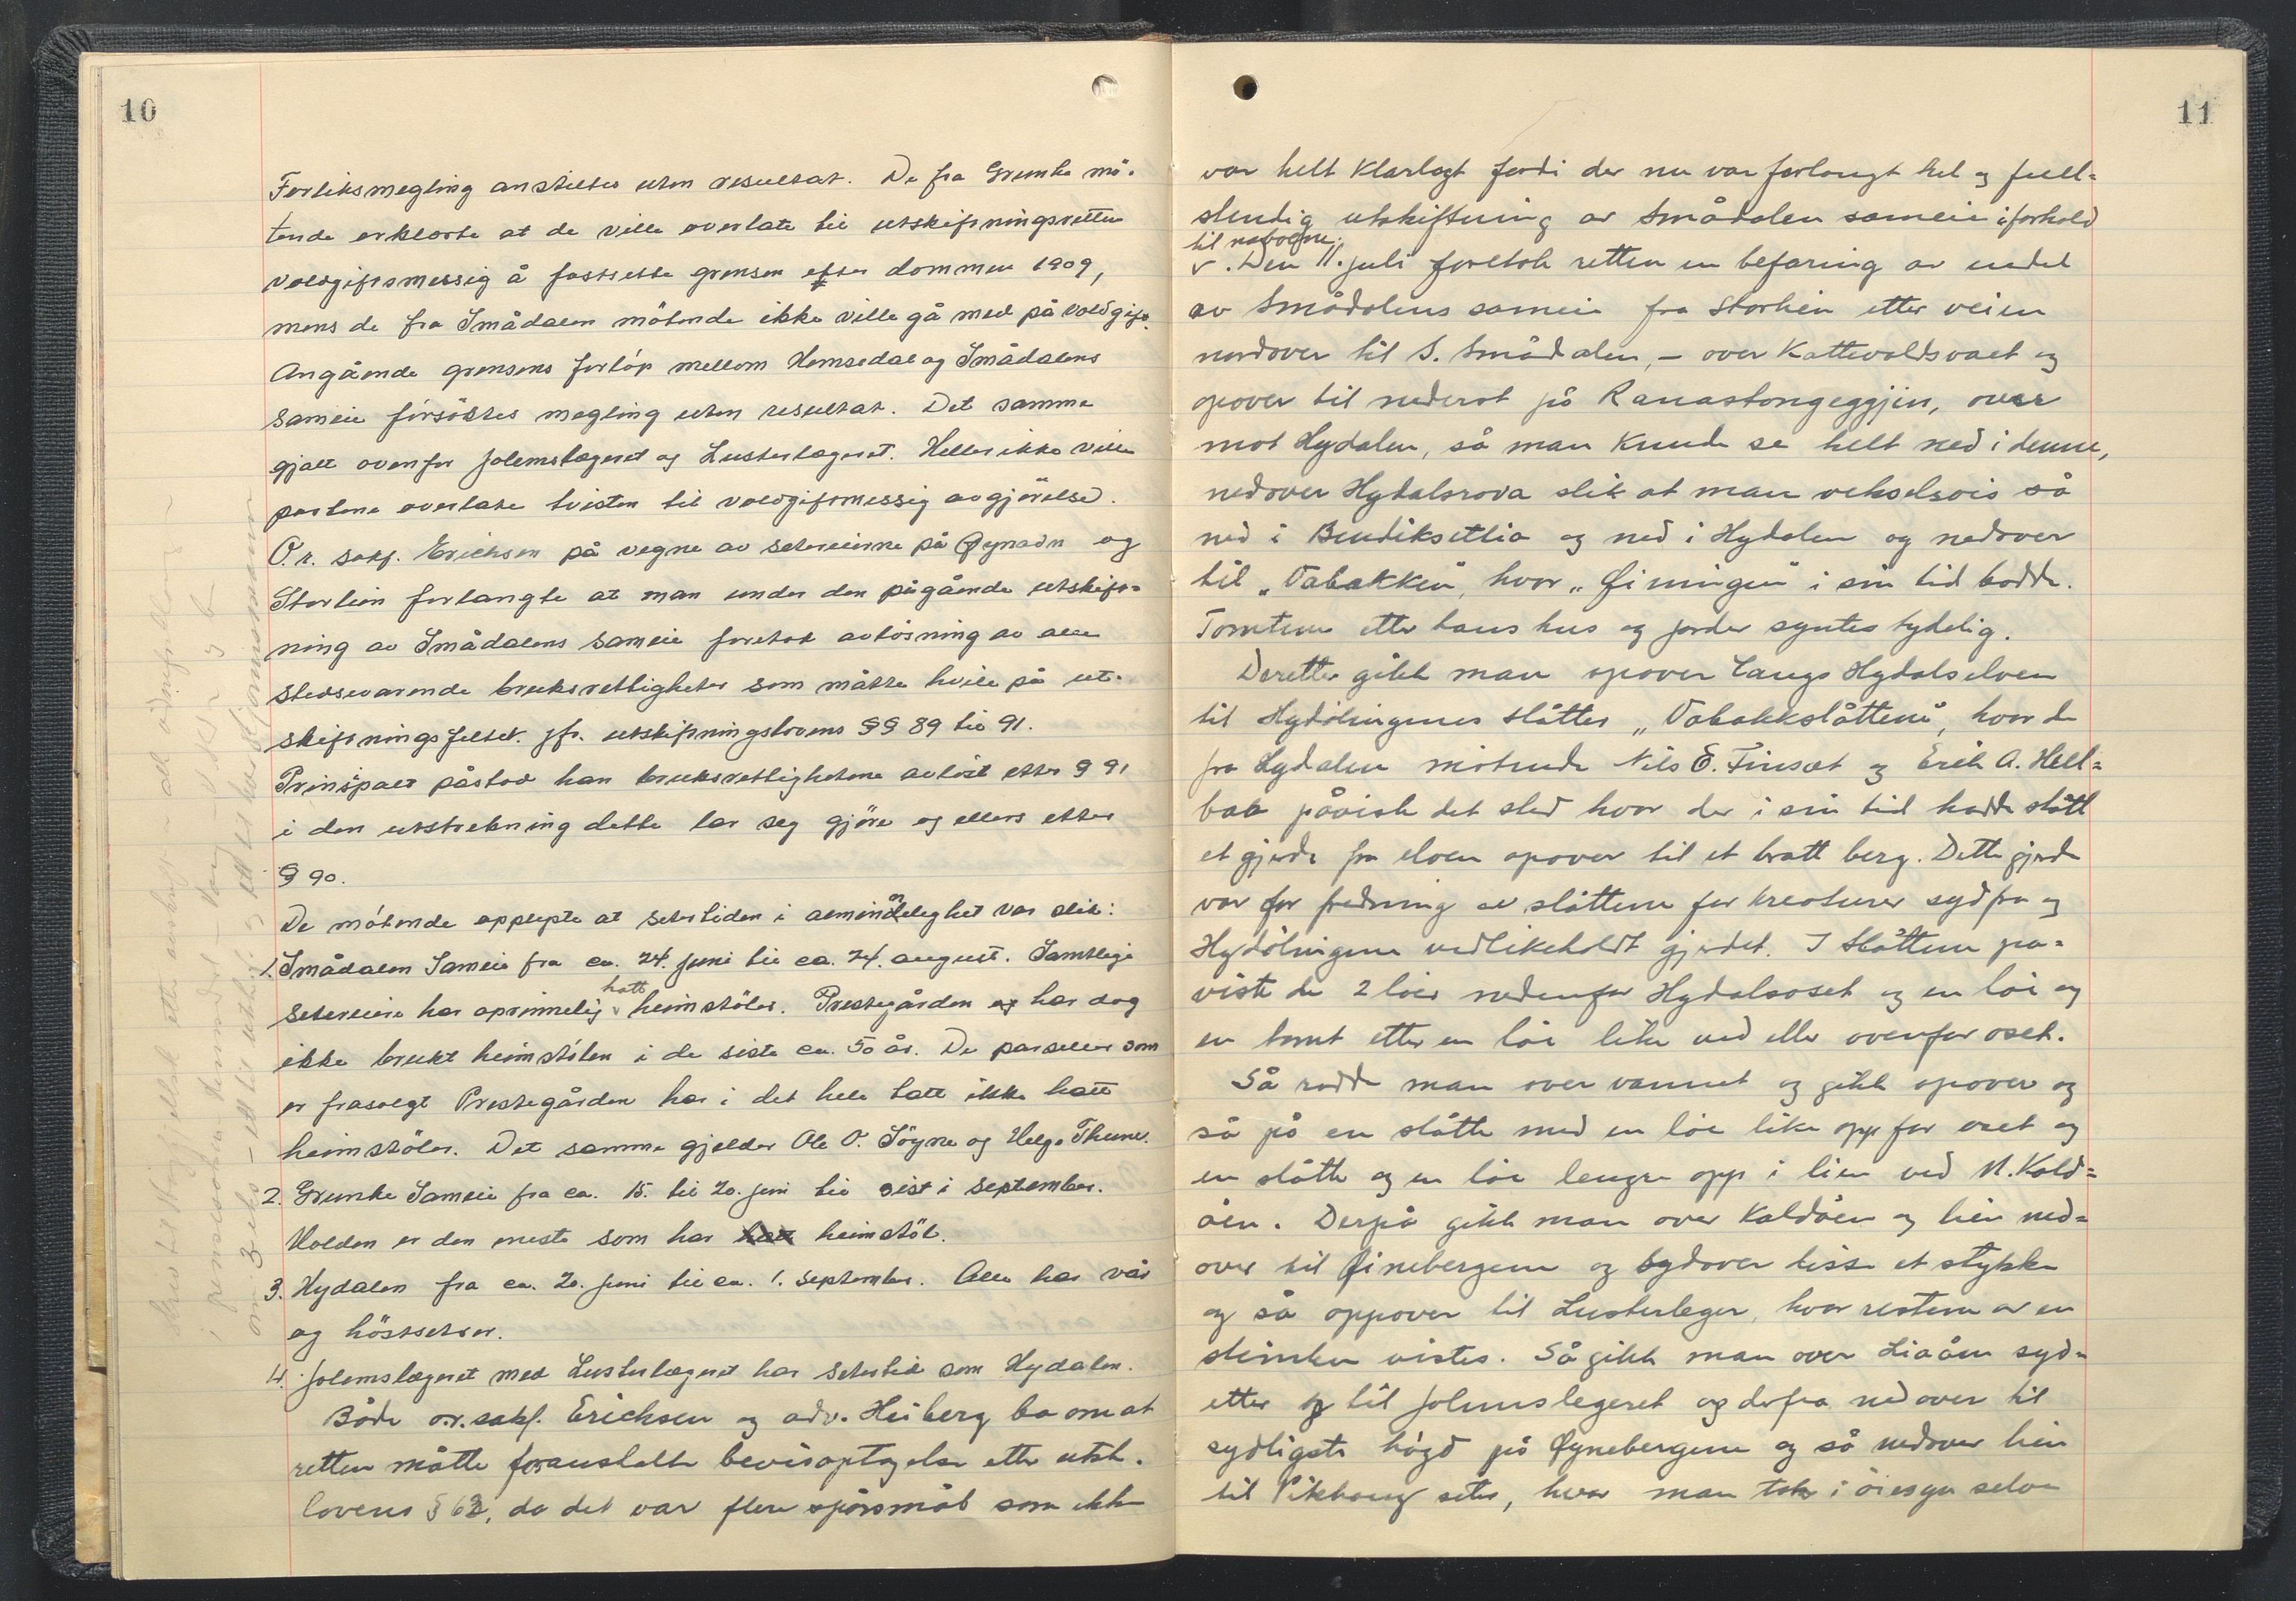 10
Forliksmegling anstiltes uten resultat. De fra Grunke mö-
tende erklærte at de ville overlate til utskiftningsretten
voldgiftsmessig å fastsette grensen efter dommen 1909,
mens de fra Smådalen mötende ikke ville gå med på voldgift.
Angående grensens forlöp mellom Hemsedal og Smådalens
sameie forsöktes megling uten resultat. Det samme
gjalt ovenfor Jolemslægeret og Lusterlægeret. Heller ikke ville
partene overlate tvisten til voldgiftsmessig avgjörelse.
O.r. sakf. Erichsen på vegne av setereierne på Øynadn og
Storlien forlangte at man under den pågående utskift-
ning av Smådalens sameie foretok avlösning av alle
stedsevarende bruksrettigheter som måtte hvile på ut-
skiftningsfeltet. jfr. utskiftningslovens §§ 89 til 91.
Prinsipalt påstod han bruksrettighetene avlöst etter § 91
i den utstrekning dette lar seg gjöre og ellers etter
§ 90.
De mötende opplyste at setertiden i almindelighet var slik:
1. Smådalen Sameie fra ca. 24. juni til ca. 24. august. Samtlige
setereiere har oprinnelig hatt heimstöler. Prestegården og har dog
ikke brukt heimstölen i de siste ca. 50 år. De parseller som
er frasolgt Prestegården har i det hele tatt ikke hatt
heimstöler. Det samme gjelder Ole O. Söyne og Helge Thune.
2. Grunke Sameie fra ca. 15. til 20. juni til sist i september.
Holden er den eneste som har hatt heimstöl.
3. Hydalen fra ca. 20. juni til ca. 1. september. Alle har vår
og höstsetrer.
4. Jolemslægeret med Lusterlægeret har setertid som Hydalen.
Både o.r.sakf. Erichsen og adv. Heiberg ba om at
retten måtte foranstalte bevisoptagelse etter utsk.
lovens § 62, da det var flere spörsmål som ikke
11
var helt klarlagt fordi der nu var forlangt hel og full-
stendig utskiftning av Smådalen sameie i forhold
til naboene.
Den 11. juli foretok retten en befaring av endel
av Smådalens sameie fra Storlien etter veien
nordover til S. Smådalen, - over Kattevoldsvaet og
opover til nederst på Ranastongeggjin, over
mot Hydalen, så man kunde se helt ned i denne,
nedover Hydalsrova slik at man vekselsvis så
ned i Bendiksetlia og ned i Hydalen og nedover
til „Vabakken", hvor „Finingen" i sin tid bodde.
Tomtene etter hans hus og jorder syntes tydelig.
Deretter gikk man opover langs Hydalselven
til Hydölingenes slåtter „Vabakkslåttene", hvor de
fra Hydalen mötende Nils E. Finset og Erik A. Hell-
bak påviste det sted hvor der i sin tid hadde stått
et gjerde fra elven opover til et bratt berg. Dette gjerde
var for fredning av slåttene for kreaturer sydfra og
Hydölingene vedlikeholdt gjerdet. I Slåttene på-
viste de 2 löer nedenfor Hydalsoset og en löe og
en tomt etter en löe like ved eller ovenfor oset.
Så rodde man over vannet og gikk opover og
så på en slåtte med en löe like opp for oset og
en slåtte og en löe lengre opp i lien ved N. Kald-
åen. Derpå gikk man over Kaldåen og lien ned-
over til Finebergene og sydover disse et stykke
og så oppover til Lusterleger, hvor restene av en
steinbu vistes. Så gikk man over Liaåen syd-
etter og til Jolemslegeret og derfra nedover til
sydligste högd på Øynebergene og så nedover lien
til Vikhaug seter, hvor man tok i öiesyn selve